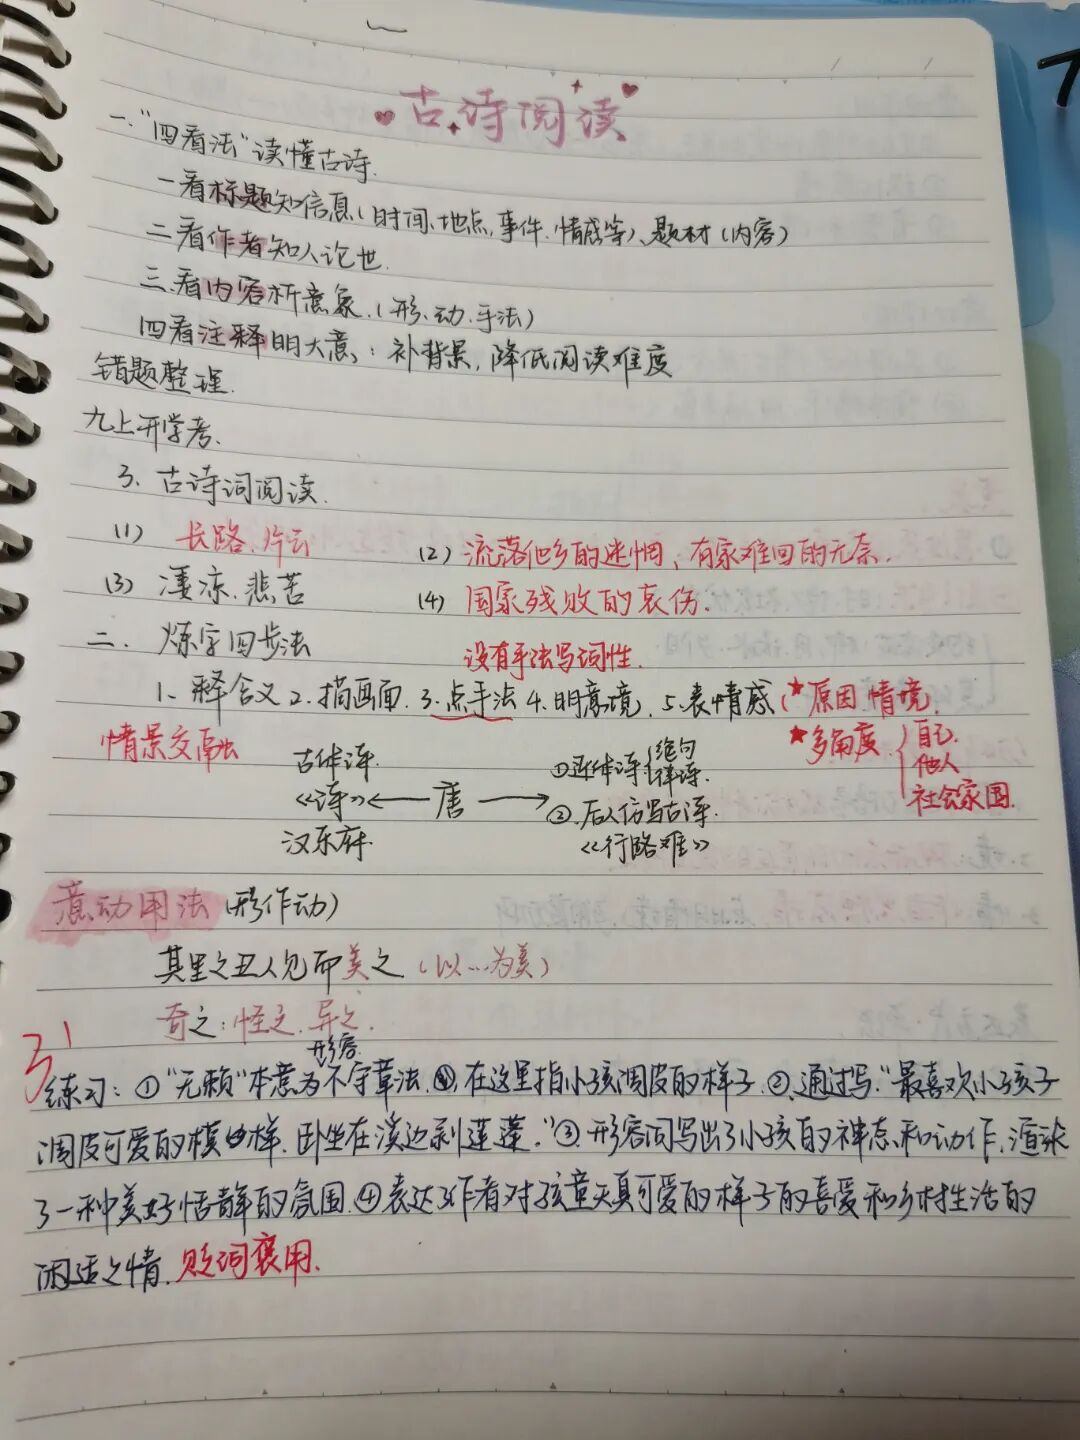 古诗阅读
一."四看法"读懂古诗.
一看标题知信息(时间、地点,事件.情感等)、题材(内容)
二看作者知人论世.
三.看内容析意象.(形、动.手法)
四看注释明大意:补背景,降低阅读难度
错题整理.
九上开学考.
3. 古诗词阅读.
(1) 长路.片云 (2) 流落他乡的迷惘、有家难回的无奈.
(3) 凄凉.悲苦 (4) 国家残败的哀伤.
二. 炼字四步法 没有手法写词性.
1. 释含义 2.描画面. 3.点手法 4.明意境. 5.表情感(★原因 情境.
情景交融 古体诗. ①近体诗{绝句 律诗. ★多角度.{自己. 他人 社会家国.
《诗》← 唐 → ②.后人仿写古诗.
汉乐府. 《行路难》
意动用法(形作动)
其里之丑人见而美之.(以…为美)
奇之:怪之.异之.
形容
3'
练习:①"无赖"本意为不守章法.在这里指小孩调皮的样子.②.通过写."最喜欢小孩子
调皮可爱的模样.卧坐在溪边剥莲蓬."③.形容词写出了小孩的神态和动作,渲染
了一种美好恬静的氛围.④表达了作者对孩童天真可爱的样子的喜爱和乡村生活的
闲适之情.贬词褒用.